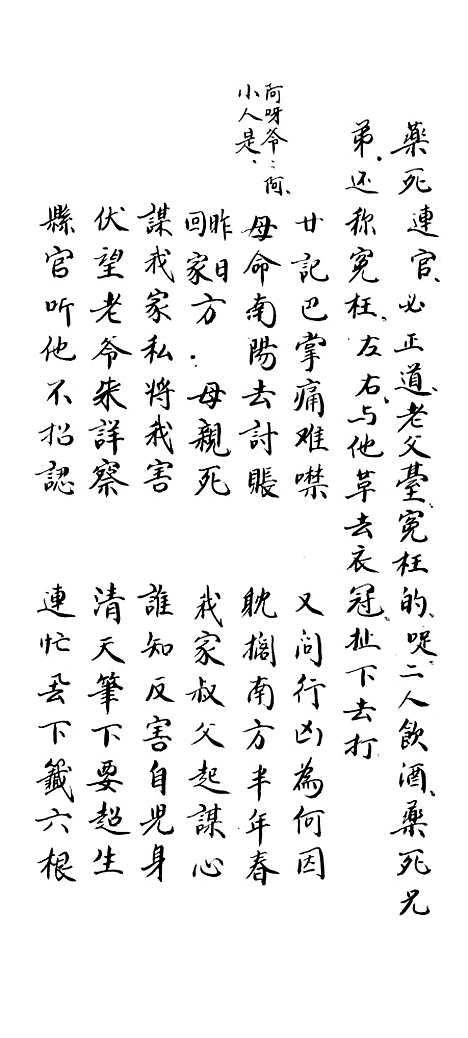 藥死連官、必正道、老父臺、寃枉的、哫二人飲酒、藥死兄
弟、还称寃枉、左右、与他草去衣冠扯下去打
阿呀爷〻阿、
小人是、
廿記巴掌痛难噤 又问行凶為何因
母命南陽去討賬 耽搁南方半年春
昨日回家方．母親死 我家叔父起謀心
謀我家私將我害 誰知反害自兇身
伏望老爷来詳察 清天筆下要超生
縣官听他不招認 連忙丢下籤六根